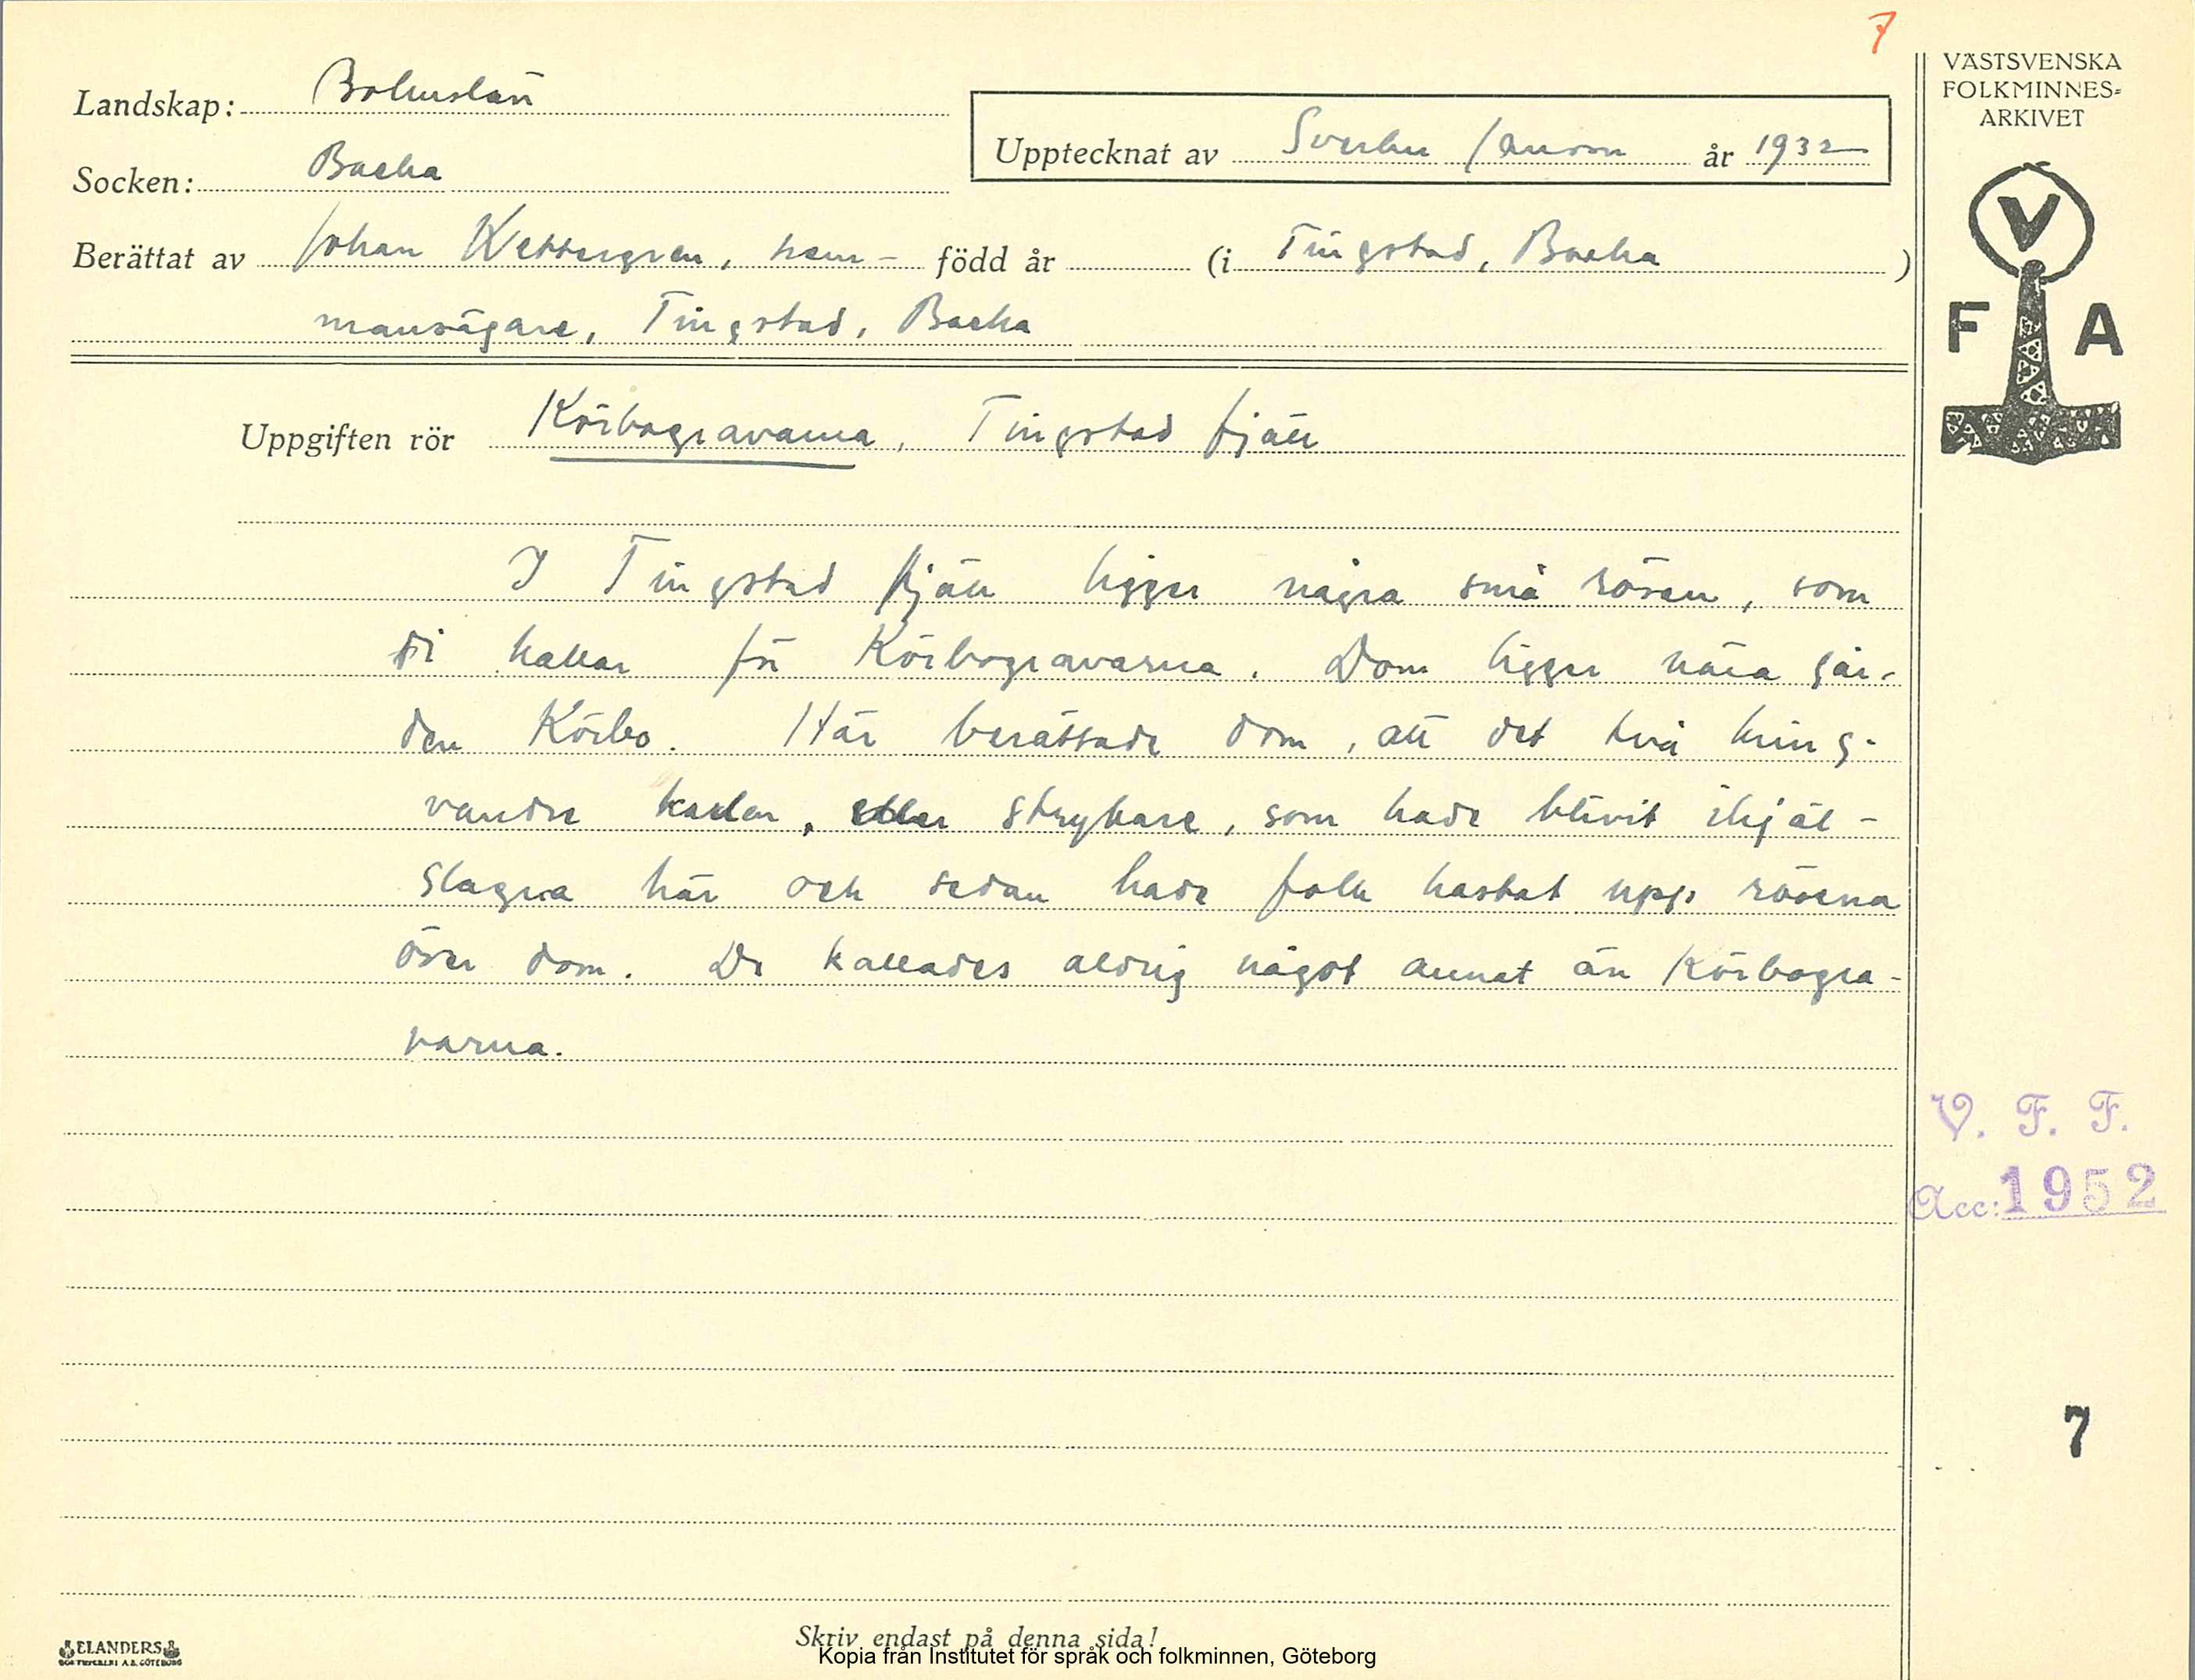 7
VÄSTSVENSKA
FOLKMINNES-
ARKIVET
Landskap: Bohuslän
Upptecknat av Sverker Janson år 1932
Socken: Backa
Berättat av Johan Wettergren, hem- född år (i Tingstad, Backa)
mansägare, Tingstad, Backa
V
F A
Uppgiften rör Körbogravarna, Tingstad fjäll
I Tingstad fjäll ligger några små rösen, som
di kallar för Körbogravarna. Dom ligger nära går-
den Körbo. Här berättade dom, att det två kring-
vandre karlar, eller strykare, som hade blivit ihjäl-
slagna här och sedan hade folk kastat upp rösena
över dom. De kallades aldrig något annat än Körbogra-
varna.
V. F. F.
Acc: 1952
7
Skriv endast på denna sida!
ELANDERS
Kopia från Institutet för språk och folkminnen, Göteborg